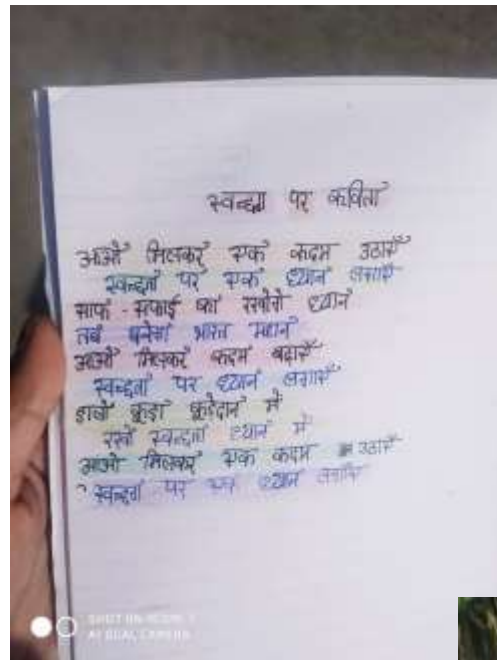 स्वच्छता पर कविता
आओ मिलकर एक कदम उठाएँ
स्वच्छता पर एक ध्यान लगाएँ
साफ - सफाई का रखोगे ध्यान
तब बनेगा भारत महान
आओ मिलकर कदम बढ़ाएँ
स्वच्छता पर ध्यान लगाएँ
डालो कूड़ा कूड़ेदान में
रखो स्वच्छता ध्यान में
आओ मिलकर एक कदम उठाएँ
स्वच्छता पर ध्यान लगाएँ
SHOT ON REDMI 7
AI DUAL CAMERA